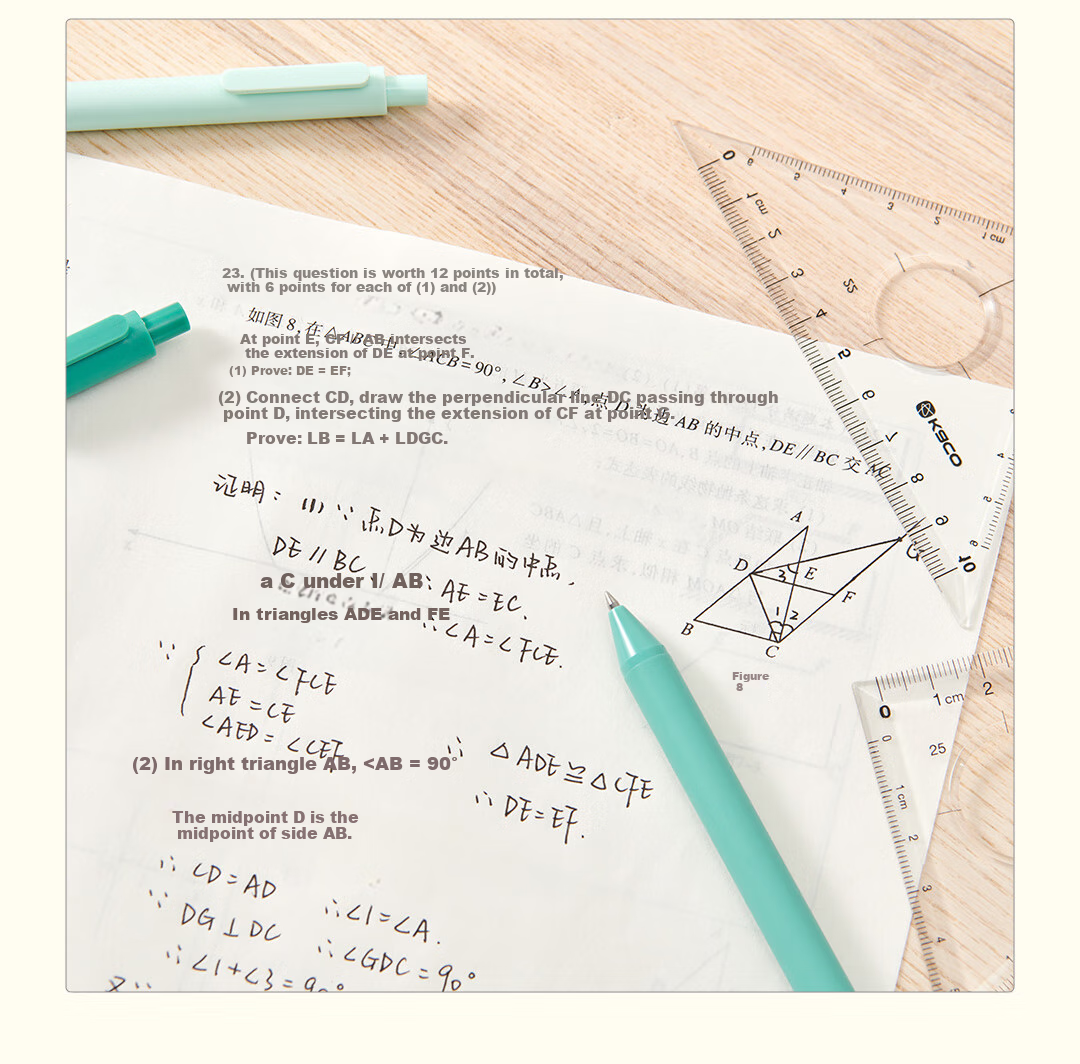 23. (This question is worth 12 points in total,
with 6 points for each of (1) and (2))
如图 8, 在△ABC中, ∠ACB=90°, ∠B>∠A, 点 D 为边 AB 的中点, DE∥BC 交 AC
At point E, CF // AB intersects
the extension of DE at point F.
(1) Prove: DE = EF;
(2) Connect CD, draw the perpendicular line DC passing through
point D, intersecting the extension of CF at point
Prove: LB = LA + LDGC.
证明: (1) ∵ 点D为边AB的中点,
DE∥BC
∴ AE=EC.
a C under // AB
∴∠A=∠FCE.
In triangles ADE and FE
∵ { ∠A=∠FCE
AE=CE
∠AED=∠CEF
∴ △ADE≌△CFE
∴ DE=EF.
(2) In right triangle AB, <AB = 90°
The midpoint D is the
midpoint of side AB.
∴ CD=AD
∴∠1=∠A.
∵ DG⊥DC
∴∠GDC=90°
∴∠1+∠3=90°
又∵
A
D
3
E
G
F
B
1
2
C
Figure
8
0
1 cm
2
3
4
5
6
7
8
9
10
KACO
55
0
1 cm
2
25
0
1 cm
2
3
4